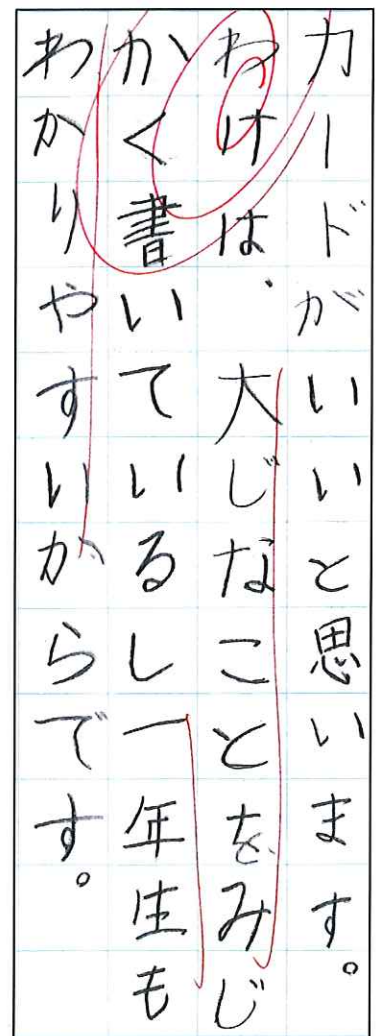 カードがいいと思います。
わけは、大じなことをみじ
かく書いているし一年生も
わかりやすいからです。